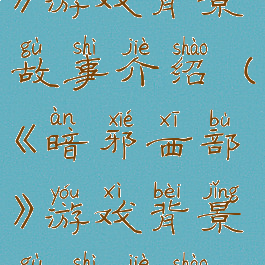 》游戏背景
gù shì jiè shào
故事介绍（
àn xié xī bù
《暗邪西部
yóu xì bèi jǐng
》游戏背景
gù shì jiè shào